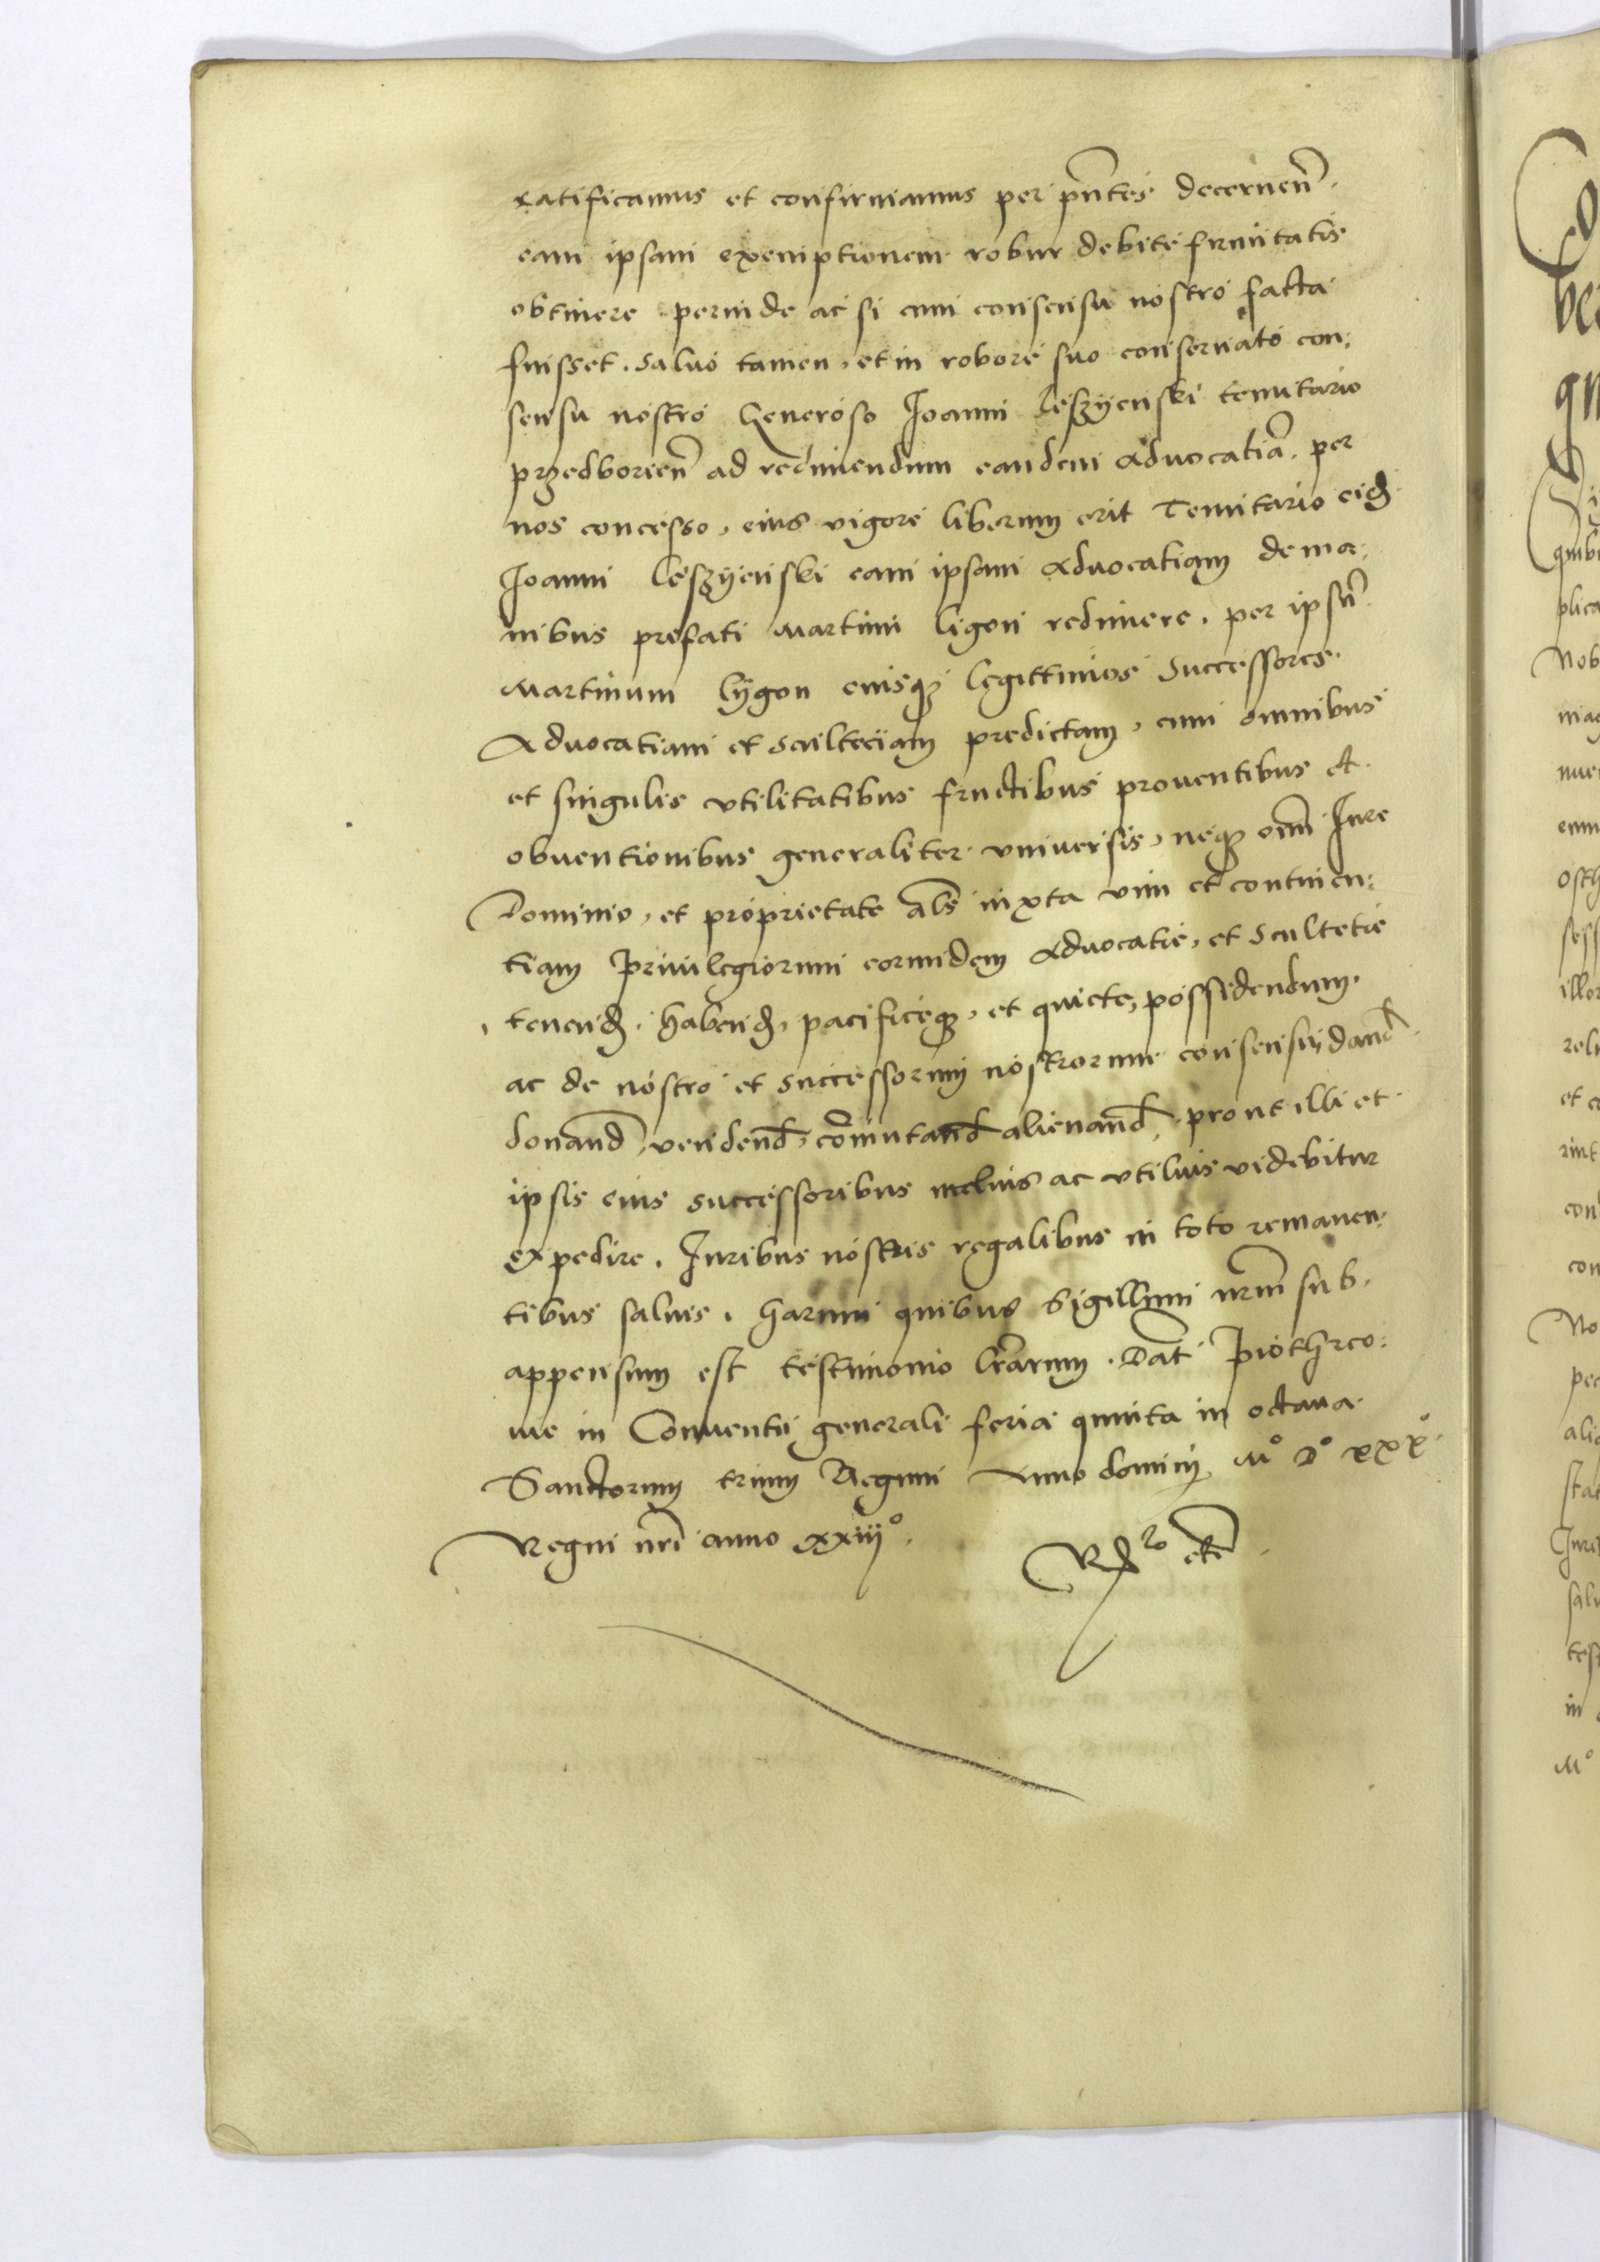 ratificamus et confirmamus per pn̄tes decernen̄.
eam ipsam exemptionem robur debite firmitatis
obtinere perinde ac si cum consensu nostro facta
fuisset. Salvo tamen, et in robore suo conservato con:
sensu nostro Generoso Joanni Leszÿenski tenutario
przedborien̄ ad redimendum eandem advocatiā per
nos concesso, cuius vigore liberum erit Tenutario eid
Joanni Leszÿenski eam ipsam advocatiam de ma:
nibus prefati Martini ligon redimere, per ipsū
Martinum lÿgon eiusq legittimos successores
Advocatiam et scultetiam predictam, cum omnibus
et singulis vtilitatibus fructibus proventibus et
obventionibus generaliter vniversis, neq om̄i Jure
Dominio, et proprietate al̄s iuxta vim et continen:
tiam priuilegiorum eorundem advocatie, et scultetie
tenend, habend, pacificeq, et quiete, possidendum
ac de nostro et successorum nostrorum consensu dand
donand, vendend, cōmutand alienand, prout illi et
ipsis eius successoribus melius ac vtilius videbitur
expedire. Juribus nostris regalibus in toto remanen:
tibus salvis. Harum quibus Sigillum nr̄m sub
appensum est testimonio lr̄arum. Dat Piothrco:
vie in Conventu generali feria quinta in octava
Sanctorum trium Regum Anno domini M° D° xxx°
Regni nr̄i anno xxiiij°.